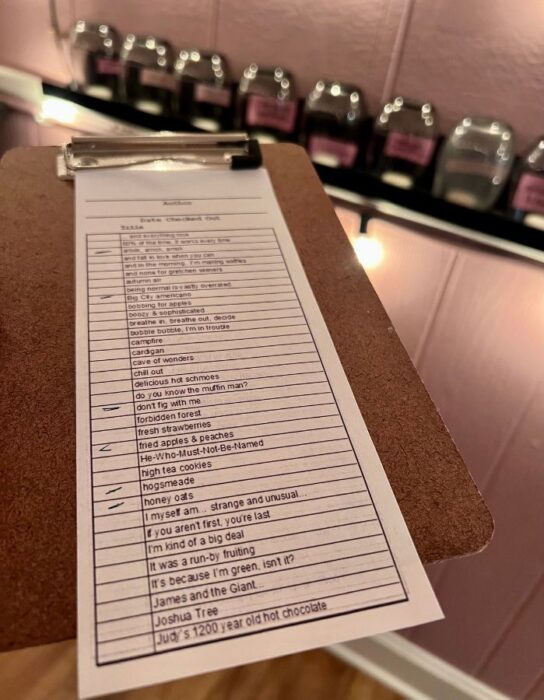 Author
Date Checked Out
Title
and everything nice
60% of the time, it works every time
amok, amok, amok
and fall in love when you can
and in the morning, I'm making waffles
and none for gretchen weiners
autumn air
being normal is vastly overrated
Big City americano
bobbing for apples
boozy & sophisticated
breathe in, breathe out, decide
bubble bubble, I'm in trouble
campfire
cardigan
cave of wonders
chill out
delicious hot schmoes
do you know the muffin man?
don't fig with me
forbidden forest
fresh strawberries
fried apples & peaches
He-Who-Must-Not-Be-Named
high tea cookies
hogsmeade
honey oats
I myself am... strange and unusual...
if you aren't first, you're last
I'm kind of a big deal
It was a run-by fruiting
It's because I'm green, isn't it?
James and the Giant...
Joshua Tree
Judy's 1200 year old hot chocolate